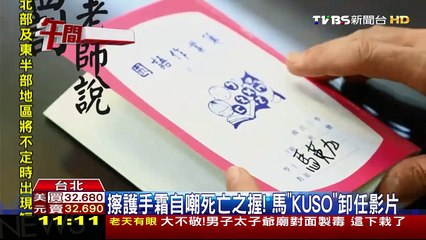 TVBS新聞台HD
午間
老師說
國語作業簿
北部及東半部地區將不定時出現
台北
擦護手霜自嘲死亡之握! 馬"KUSO"卸任影片
美 買32.680
元 賣32.690
11:11
老天有眼 大不敬!男子太子爺廟對面製毒 這下栽了